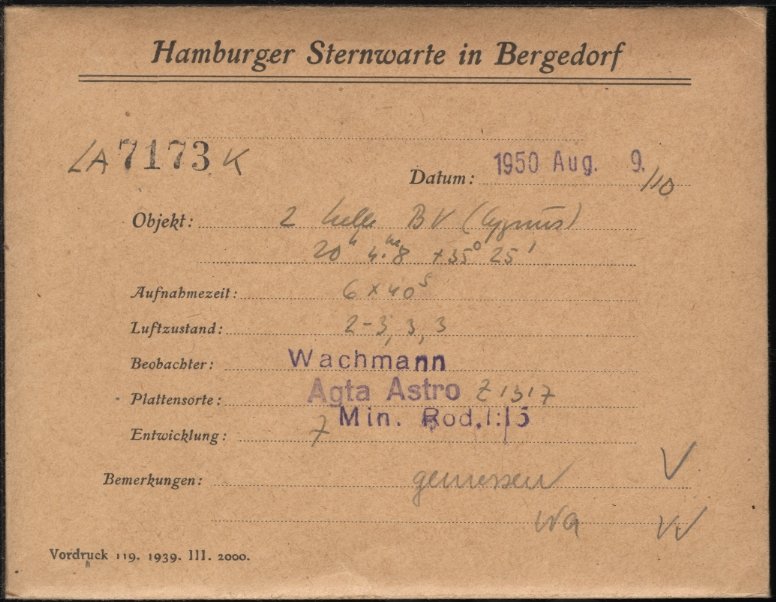 Hamburger Sternwarte in Bergedorf
LA 7173 K
Datum: 1950 Aug. 9./10
Objekt: 2 helle BV (Cygnus)
20ʰ 4.ᵐ8 +35° 25'
Aufnahmezeit: 6 × 40ˢ
Luftzustand: 2-3, 3, 3
Beobachter: Wachmann
Plattensorte: Agfa Astro Z 1317
Entwicklung: 7 Min. Rod. 1:15
Bemerkungen: gemessen V
Wa
Vordruck 119. 1939. III. 2000.